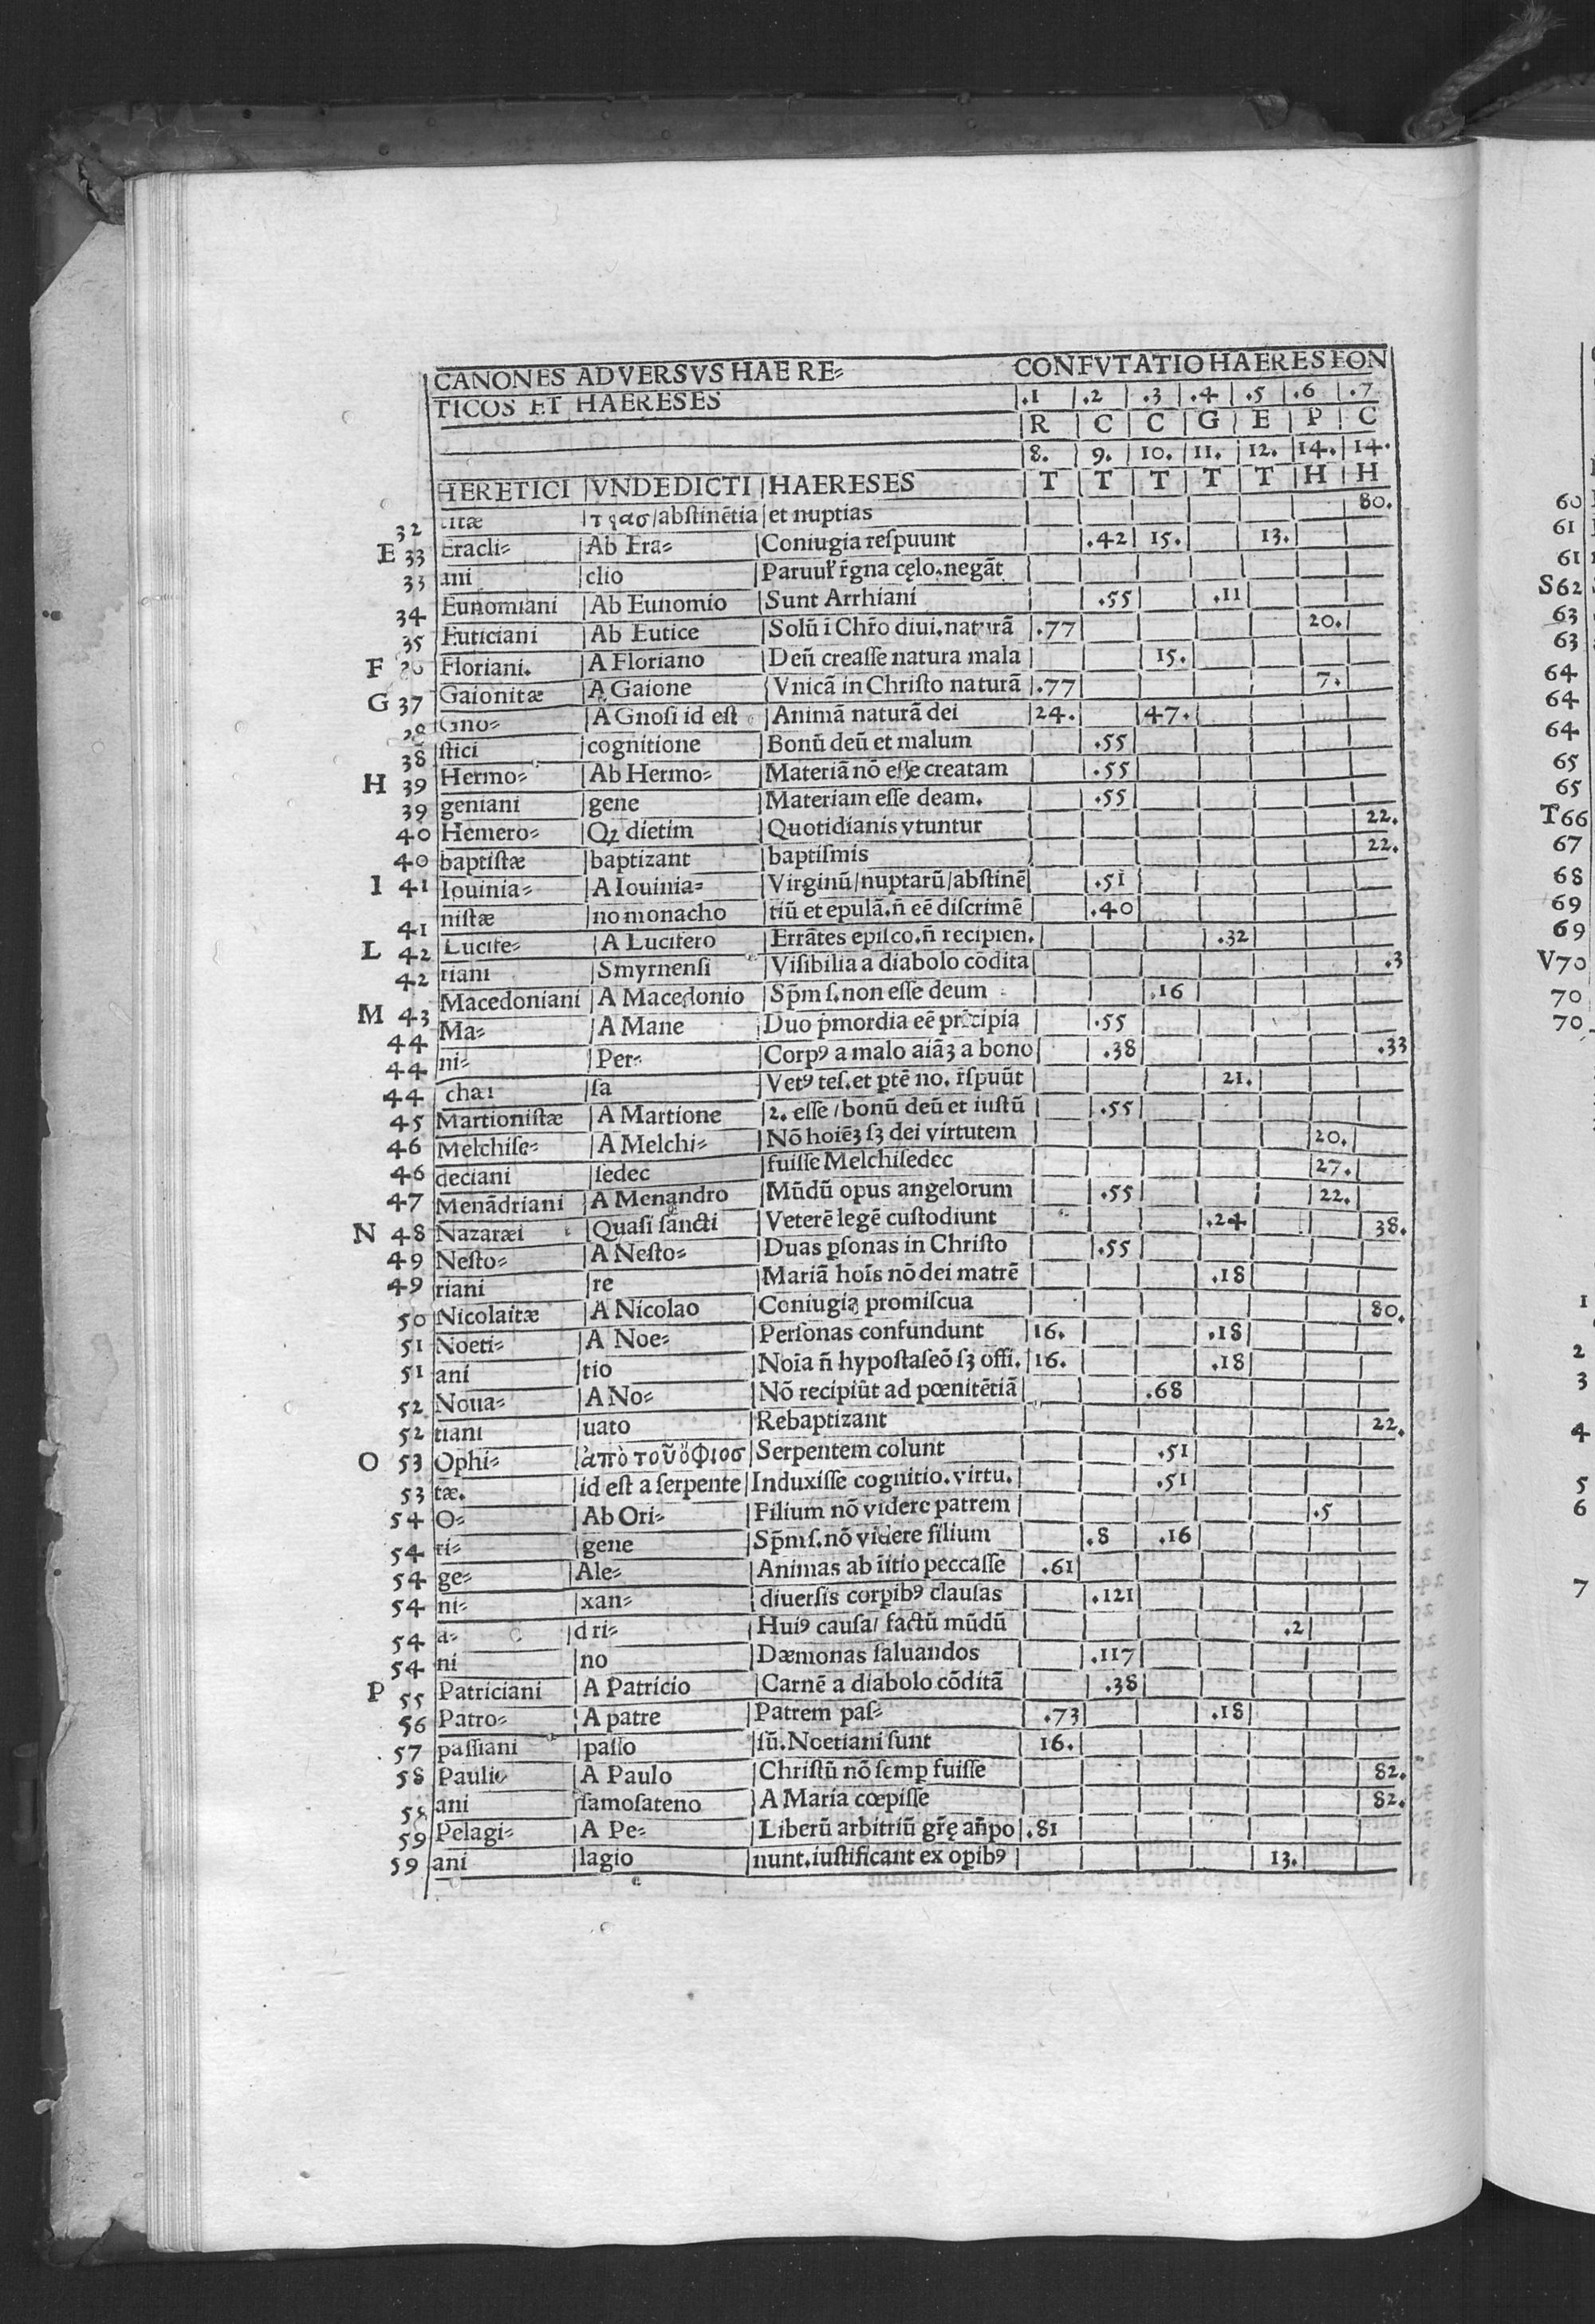 CANONES ADVERSVS HAERE= CONFVTATIO HAERESEON
TICOS ET HAERESES .1 .2 .3 .4 .5 .6 .7
R C C G E P C
8. 9. 10. 11. 12. 14. 14.
HERETICI VNDE DICTI HAERESES T T T T T H H
32 titæ /abstinẽtia et nuptias 80.
E 33 Eracli= Ab Era= Coniugia respuunt .42 15. 13.
33 ani clio Paruul' r̃gna cęlo.negãt
34 Eunomiani Ab Eunomio Sunt Arrhiani .55 .11
35 Euticiani Ab Eutice Solũ ĩ Chr̃o diui.naturã .77 20.
F Floriani. A Floriano Deũ creasse natura mala 15.
G 37 Gaionitæ A Gaione Vnicã in Christo naturã .77 7.
38 Gno= A Gnosi id est Animã naturã dei 24. 47.
38 stici cognitione Bonũ deũ et malum .55
H 39 Hermo= Ab Hermo= Materiã nõ esse creatam .55
39 geniani gene Materiam esse deam. .55
40 Hemero= Qꝫ dietim Quotidianis vtuntur 22.
40 baptistæ baptizant baptismis 22.
I 41 Iouinia= A Iouinia= Virginũ/nuptarũ/abstinẽ .51
41 nistæ no monacho tiũ et epulã.ñ eẽ discrimẽ .40
L 42 Lucife= A Lucifero Errãtes episco.ñ recipien. .32
42 riani Smyrnensi Visibilia a diabolo cõdita .3
M 43 Macedoniani A Macedonio Sp̃m s.non esse deum .16
44 Ma= A Mane Duo p̃mordia eẽ prĩcipia .55
44 ni= Per= Corpꝰ a malo aiãꝫ a bono .38 .33
44 chæi sa Vetꝰ tes.et ptẽ no. r̃spuũt 21.
45 Martionistæ A Martione 2. esse/bonũ deũ et iustũ .55
46 Melchise= A Melchi= Nõ hoiẽꝫ sꝫ dei virtutem 20.
46 deciani sedec fuisse Melchisedec 27.
47 Menãdriani A Menandro Mũdũ opus angelorum .55 22.
N 48 Nazaræi Quasi sancti Veterẽ legẽ custodiunt .24 38.
49 Nesto= A Nesto= Duas ꝑsonas in Christo .55
49 riani re Mariã hoĩs nõ dei matrẽ .18
50 Nicolaitæ A Nicolao Coniugia promiscua 80.
51 Noeti= A Noe= Personas confundunt 16. .18
51 ani tio Noĩa ñ hypostaseõ sꝫ offi. 16. .18
52 Noua= A No= Nõ recipiũt ad pœnitẽtiã .68
52 tiani uato Rebaptizant 22.
O 53 Ophi= ἀπὸ τοῦ ὄφιοσ Serpentem colunt .51
53 tæ. id est a serpente Induxisse cognitio.virtu. .51
54 O= Ab Ori= Filium nõ videre patrem .5
54 ri= gene Sp̃m s.nõ videre filium .8 .16
54 ge= Ale= Animas ab ĩitio peccasse .61
54 ni= xan= diuersis corꝑibꝰ clausas .121
54 a= dri= Huiꝰ causa/ factũ mũdũ .2
54 ni no Dæmonas saluandos .117
P 55 Patriciani A Patricio Carnẽ a diabolo cõditã .38
56 Patro= A patre Patrem pas= .73 .18
57 passiani passo sũ.Noetiani sunt 16.
58 Pauli= A Paulo Christũ nõ semꝑ fuisse 82.
58 ani samosateno A Maria cœpisse 82.
59 Pelagi= A Pe= Liberũ arbitriũ gr̃ę añpo .81
59 ani lagio nunt.iustificant ex oꝑibꝰ 13.
60
61
61
S62
63
63
64
64
64
65
65
T66
67
68
69
69
V70
70
70
1
2
3
4
5
6
7